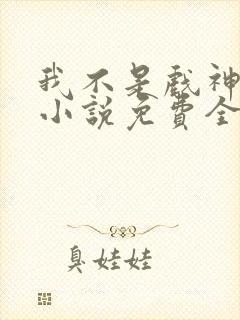 我不是戏神
小说免費全
臭娃娃